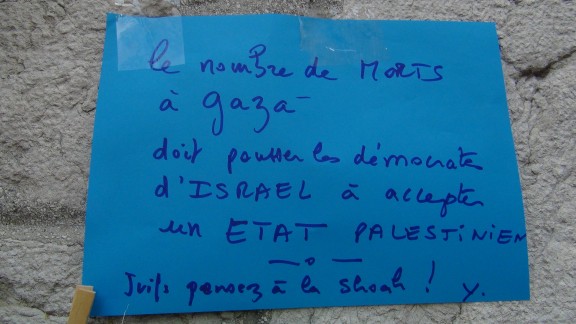 le nombre de MORTS
à gaza
doit pousser les démocrates
d'ISRAEL à accepter
un ETAT PALESTINIEN
— o —
Juifs pensez à la shoah ! y.